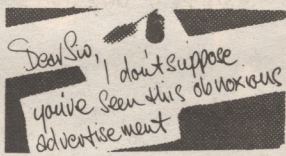 Dear Sir,
I don't suppose
you've seen this obnoxious
advertisement